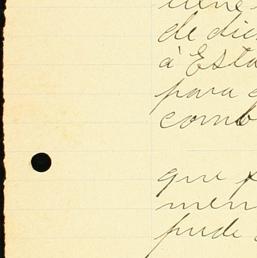 tiene
de dic
à Esta
para
comb
que
men
pude